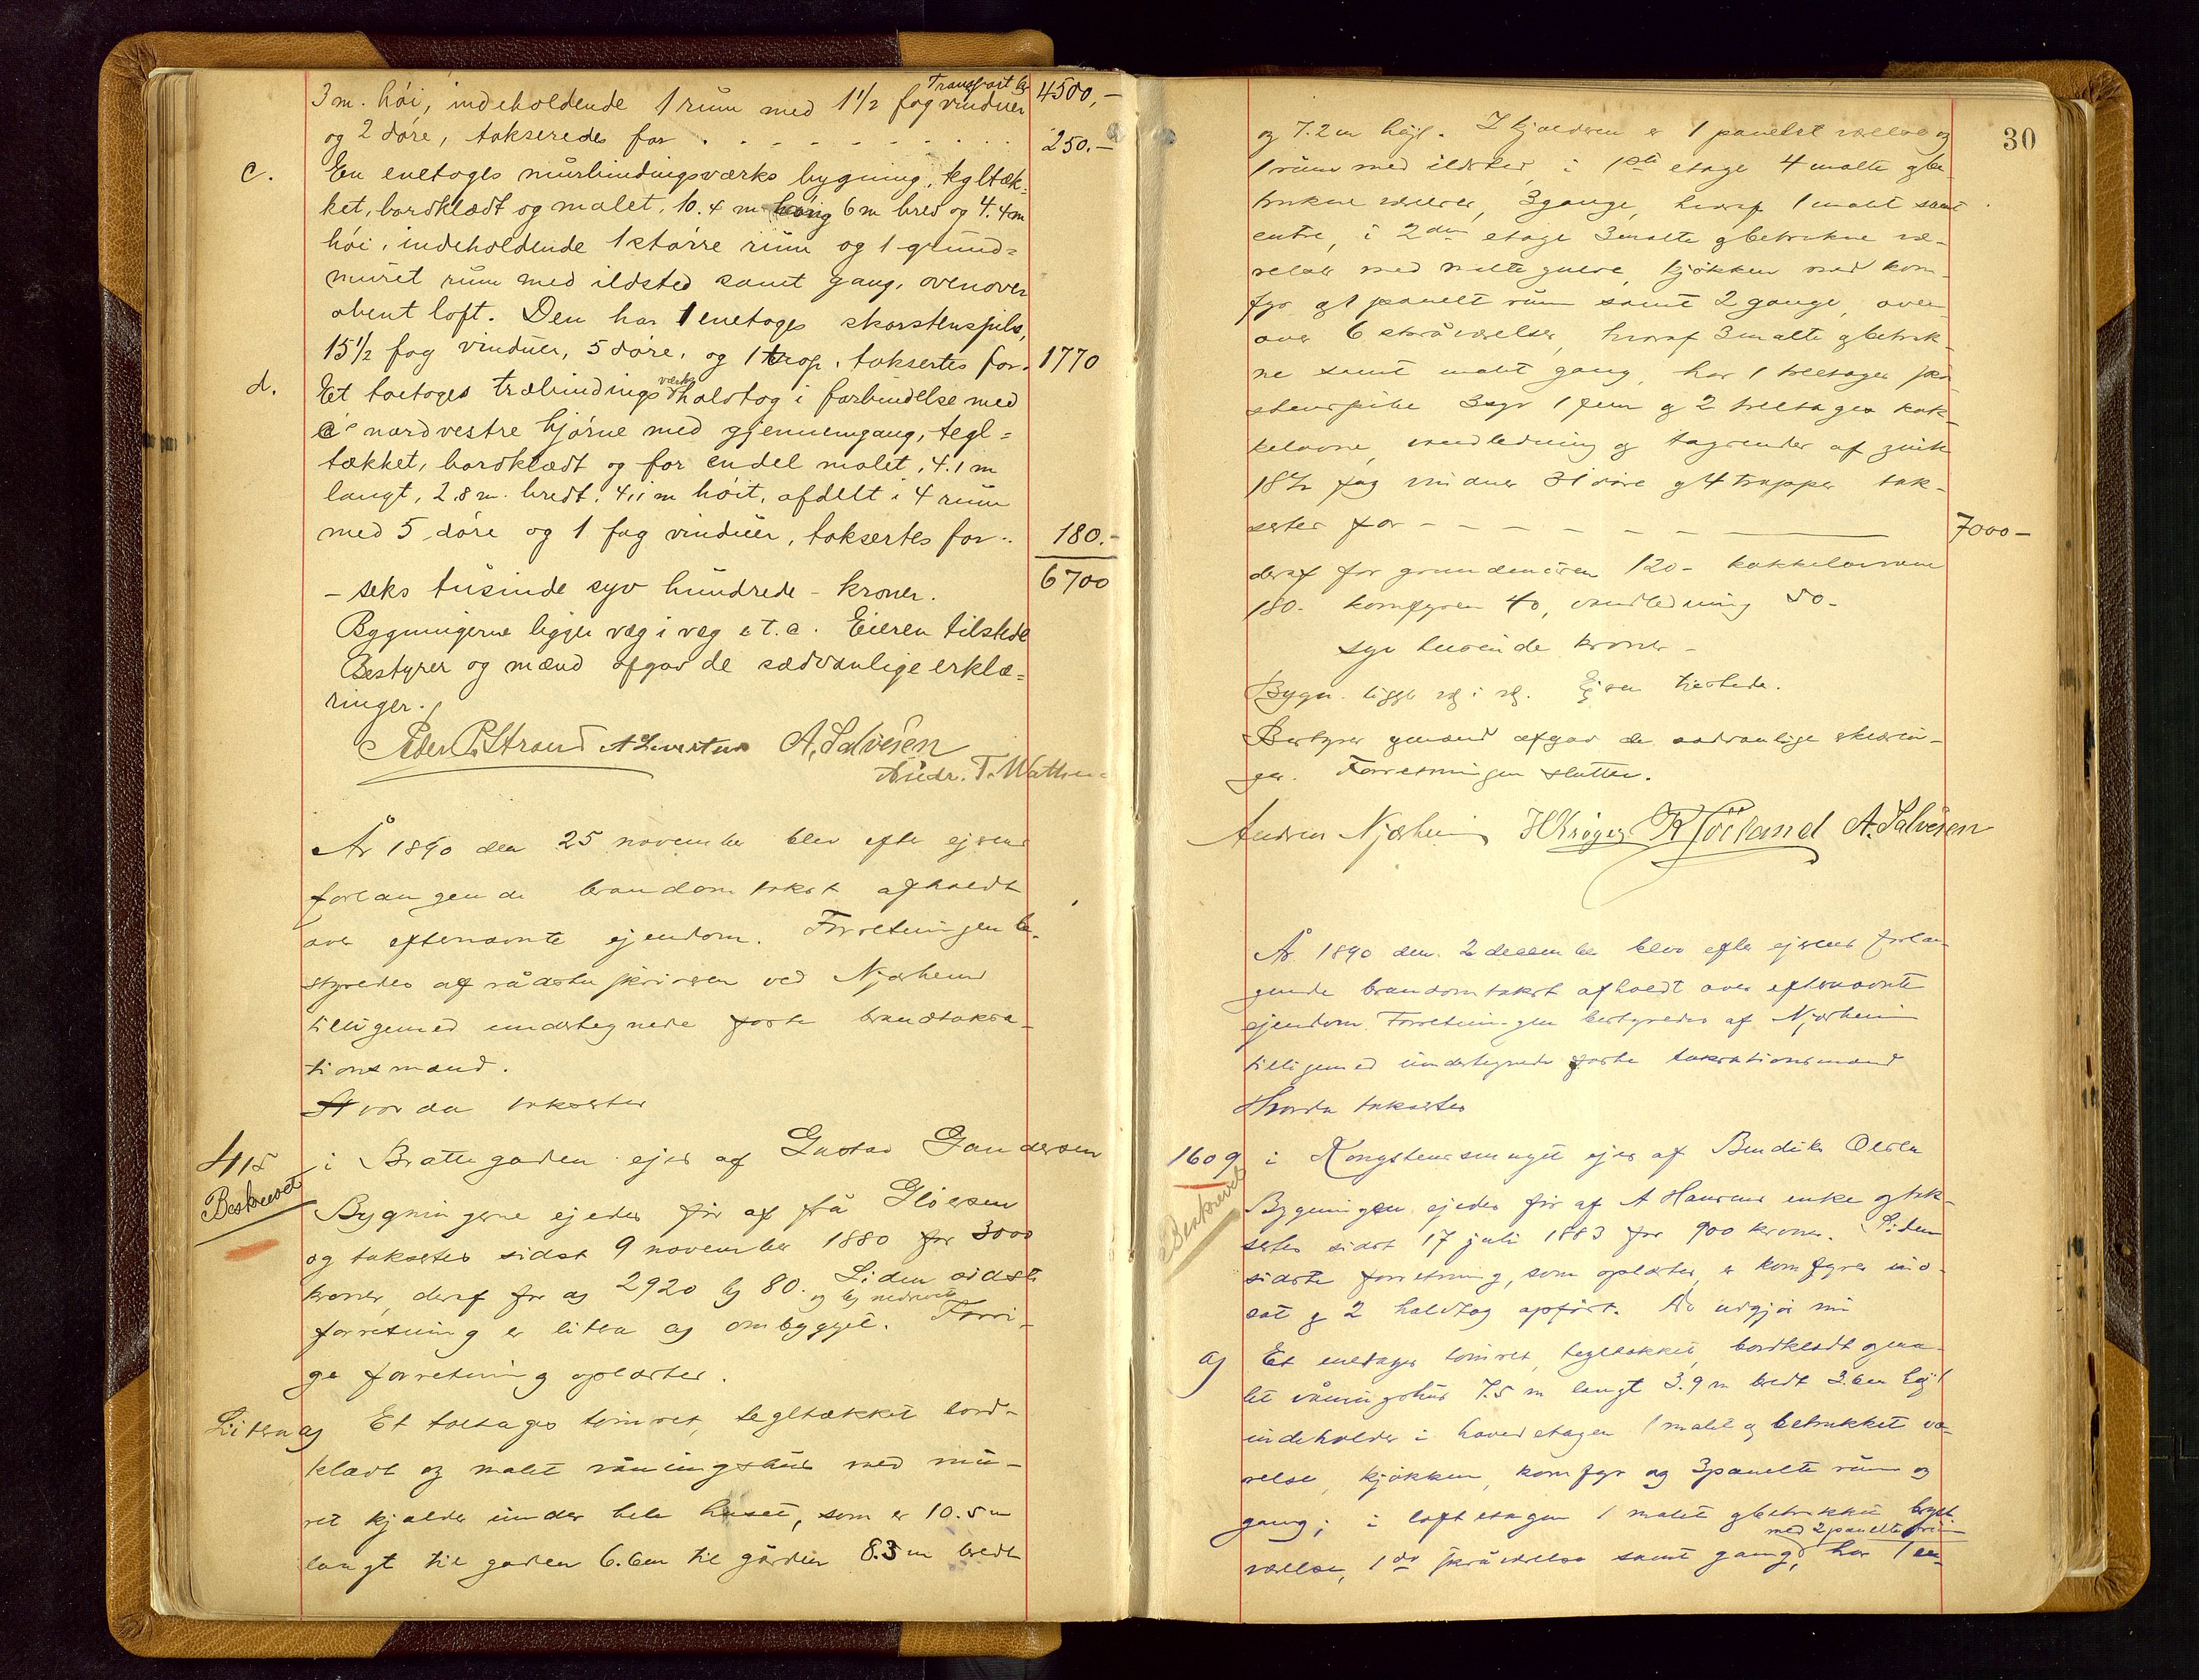 Transport kr 4500,-
3 m. høi, indeholdende 1 rum med 1½ fag vinduer
og 2 døre, takseredes for . . . . . . . . . 250.-
c. En enetages murbindingsværks bygning, tegltæk=
ket, bordklædt og malet, 10.4 m lang 6 m bred og 4.4 m
høi, indeholdende 1 større rum og 1 grund=
muret rum med ildsted samt gang, ovenover
åbent loft. Den har 1 enetages skorstenspibe,
15½ fag vinduer, 5 døre, og 1 trap, taksertes for. 1770
d. Et toetages træbindingsværks halvtag i forbindelse med
c's nordvestre hjørne med gjennemgang, tegl=
tækket, bordklædt og for endel malet, 4.1 m
langt, 2.8 m. bredt, 4,1 m høit, afdelt i 4 rum
med 5 døre og 1 fag vinduer, taksertes for.. 180.-
6700
- seks tusinde syv hundrede - kroner.
Bygningerne ligger væg i væg e t. a. Eieren tilstede
Bestyrer og mænd afgav de sædvanlige erklæ=
ringer.
Peder P. Strand A. Sivertsen A. Salvesen
Andr. T. Wathne
År 1890 den 25 november blev efter ejerens
forlangende brandomtakst afholdt
over efternævnte ejendom. Forretningen be-
styredes af rådstuskriveren ved Njærheim
tilligemed undertegnede faste brandtaksa-
tionsmænd.
Hvorda taksertes
415 i Brattegaden ejes af Gustav Gundersen
Beskrevet
Bygningerne ejedes før af frå Gloersen
og taksertes sidst 9 november 1880 for 3000
kroner, deraf for a) 2920 b) 80. Siden sidste
og b) nedrevet
forretning er litra a) ombygget. Forri-
ge forretning oplæstes.
Litra a) Et toetages tømret, tegltækket bord-
klædt og malet våningshus med mu-
ret kjælder under hele huset, som er 10.5 m
langt til gaden 6.6 m til gården 8.3 m bredt
30
og 7.2 m højt. I kjælderen er 1 panelet værelse og
1 rum med ildsted, i 1ste etage 4 malte og be-
trukne værelser, 3 gange, hvoraf 1 malt samt
entre, i 2den etage 3 malte og betrukne væ-
relser med malte gulve, kjøkken med kom-
fyr og 1 panelt rum samt 2 gange, oven-
over 6 skråværelser, hvoraf 3 malte og betruk-
ne samt malt gang, har 1 treetages skor-
stenspibe 3 syr 1 fem og 2 treetages kak-
kelovne, vandledning og tagrender af zink
18½ fag vinduer 31 døre og 4 trapper tak-
sertes for - - - - - - 7000 -
deraf for grundmuren 120 - kakkelovnene
180 - komfyren 40, vandledning 50 -
syv tusinde kroner -
Bygn. ligger væg i væg. Ejeren tilstede.
Bestyrer og mænd afgav de sædvanlige erklærin-
ger. Forretningen sluttet.
Andreas Njærheim H Krøger R Høiland A. Salvesen
År 1890 den 2 december blev efter ejerens forlan-
gende brandomtakst afholdt over efternævnte
ejendom. Forretningen bestyredes af Njærheim
tilligemed undertegnede faste taksationsmænd
Hvorda taksertes
1609 i Kongstensmuget ejes af Bendik Olsen
Beskrevet
Bygningen ejedes før af A Hansens enke og tak-
sertes sidst 17 juli 1883 for 900 kroner. Siden
sidste forretning, som oplæstes, er komfyr ind-
sat og 2 halvtag opført. De udgjør nu
a) Et enetages tømret, tegltækket, bordklædt og ma-
let våningshus 7.5 m langt 3.9 m bredt 3.6 m højt
indeholder i hovedetagen 1 malet og betrukket væ-
relse, kjøkken, komfyr og 3 panelte rum og
gang; i loftetagen 1 malet og betrukket kvist-
med 2 panelte rum
værelse, 1 do skråværelse samt gang, har 1 en-